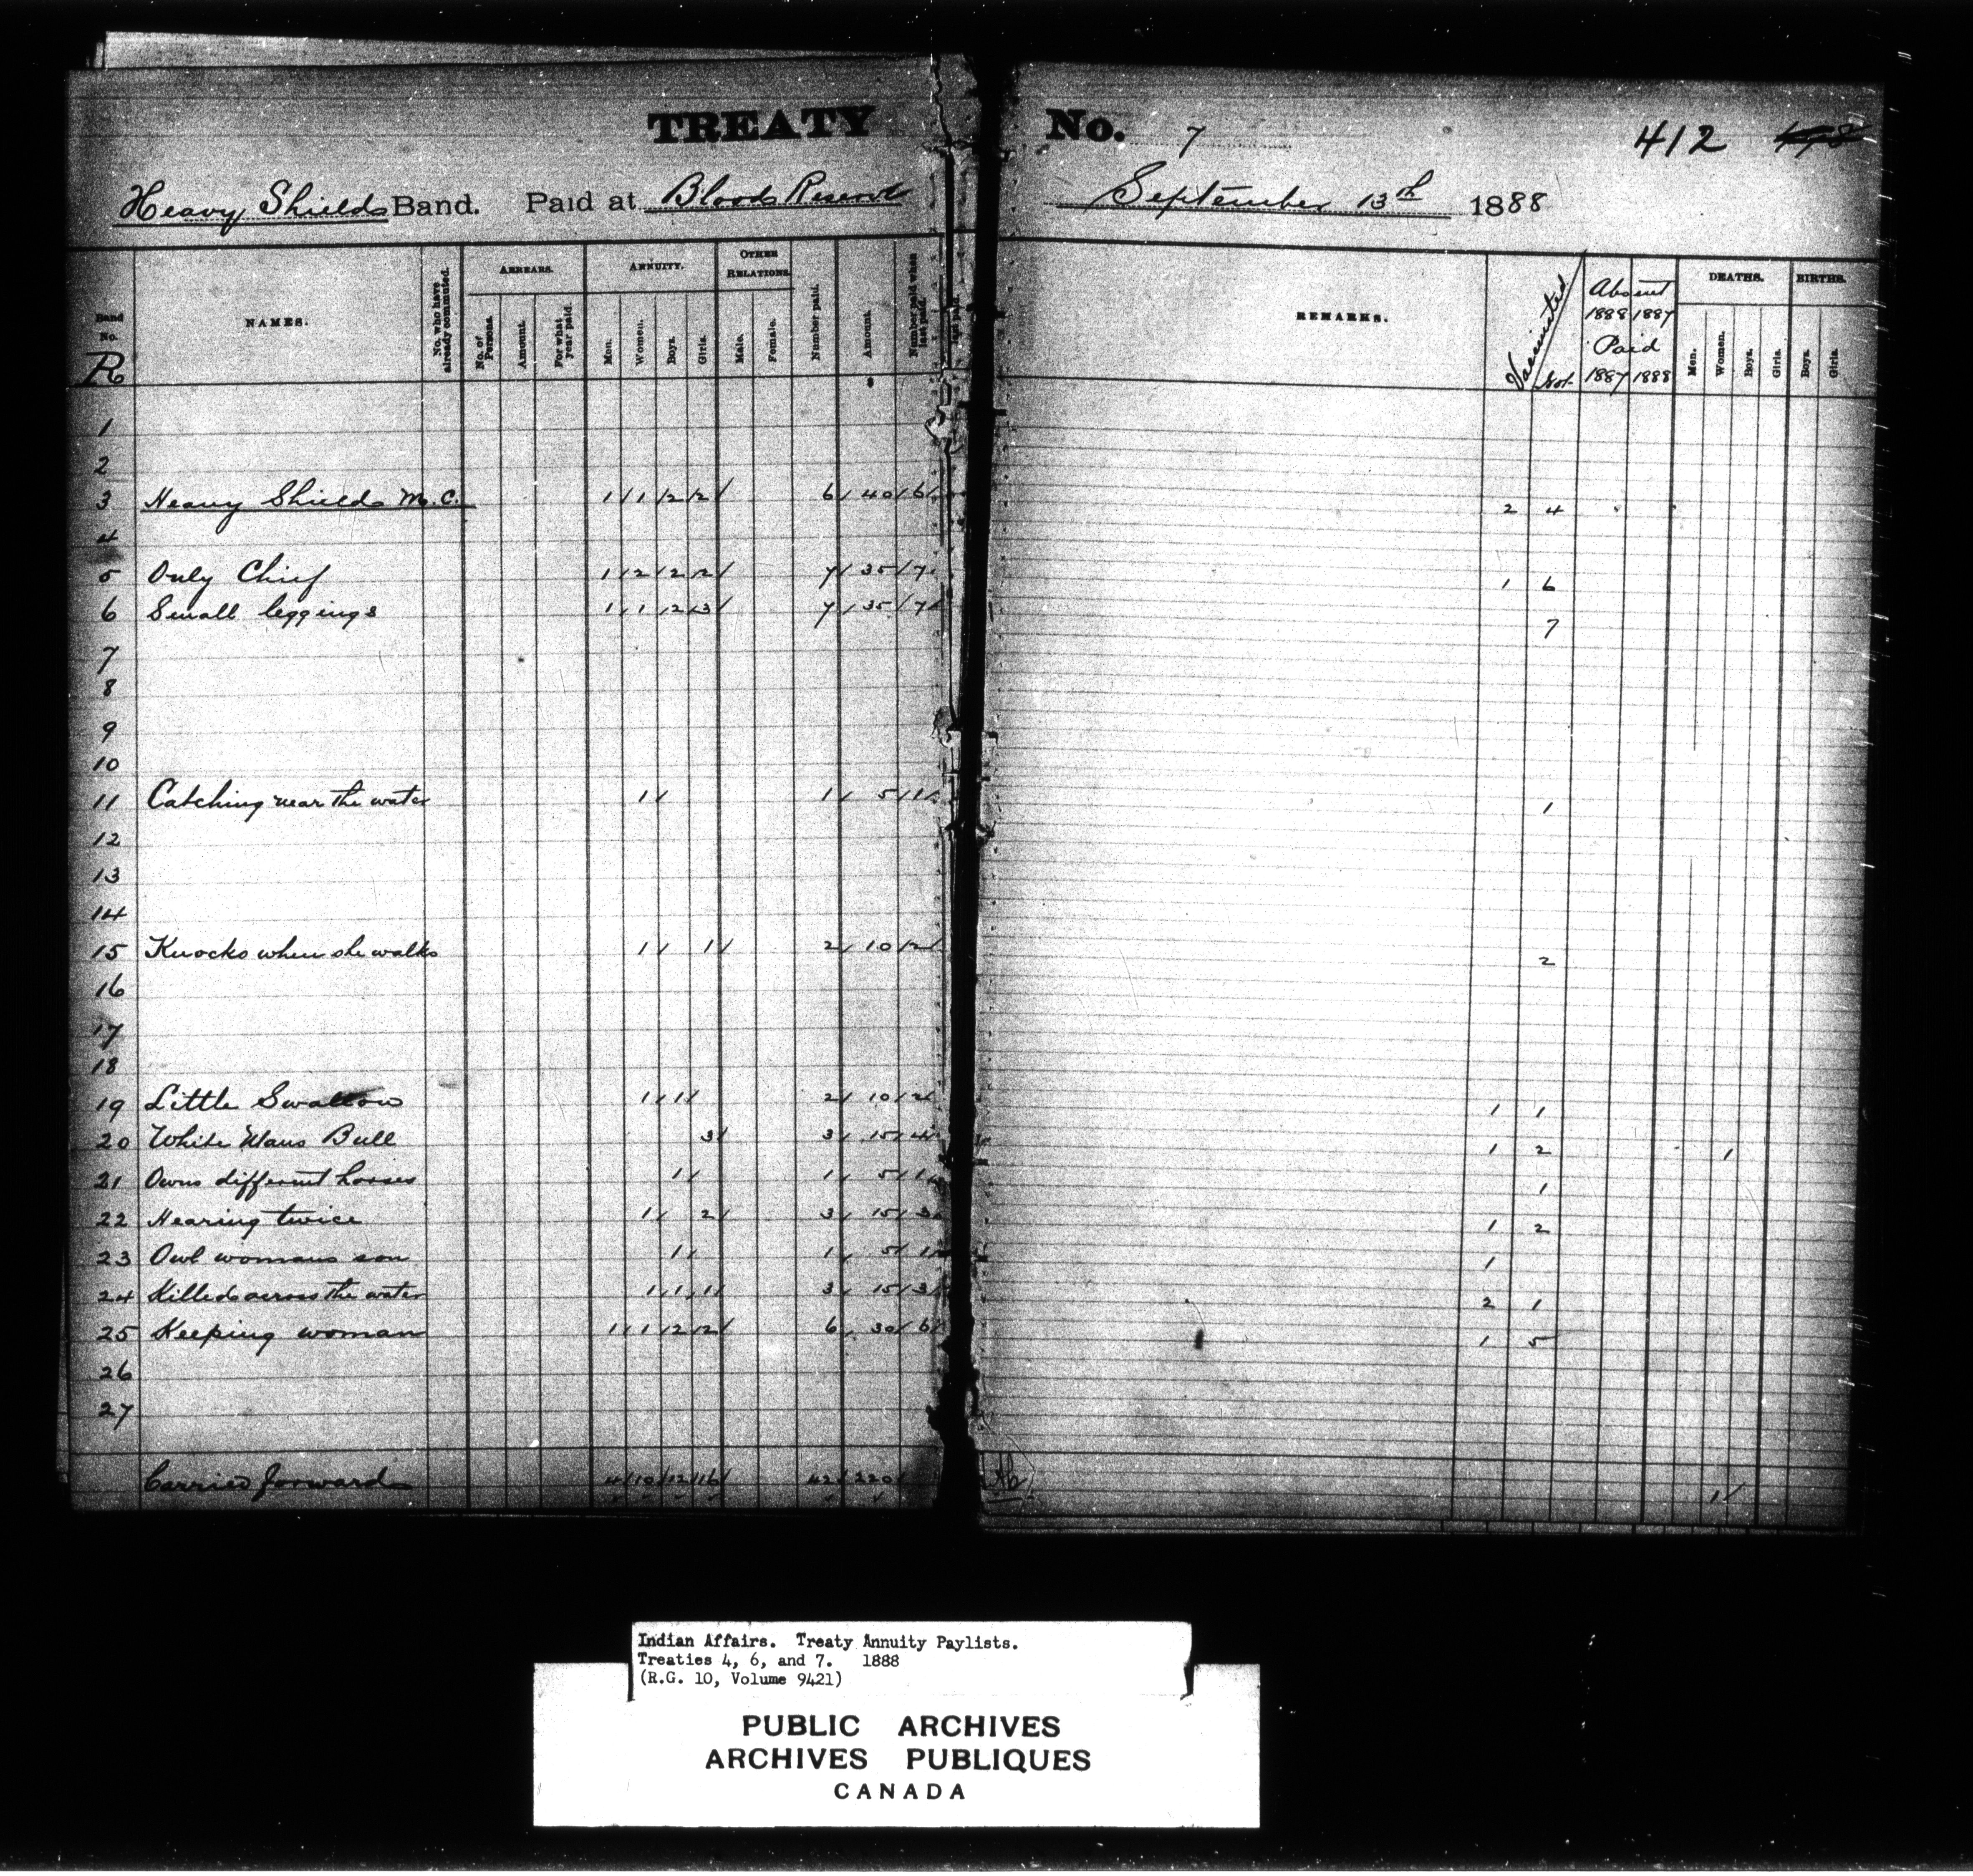 TREATY No. 7 412
Heavy Shields Band. Paid at Bloods Reserve September 13th 1888
Band No. NAMES. No. who have already commuted. ARREARS. ANNUITY. OTHER RELATIONS. Number paid. Amount. Number paid when last paid. REMARKS. Vaccinated Not Absent 1888 1887 Paid 1887 1888 DEATHS. BIRTHS.
R No. of Persons. Amount. For what year paid. Men. Women. Boys. Girls. Male. Female. $ Men. Women. Boys. Girls. Boys. Girls.
1
2
3 Heavy Shields M.C. 1/ 1/ 2/ 2/ 6/ 40/ 6/ 2 4
4
5 Only Chief 1/ 2/ 2/ 2/ 7/ 35/ 7/ 1 6
6 Small leggings 1/ 1/ 2/ 3/ 7/ 35/ 7/ 7
7
8
9
10
11 Catching near the water 1/ 1/ 5/ 1/ 1
12
13
14
15 Knocks when she walks 1/ 1/ 2/ 10/ 2/ 2
16
17
18
19 Little Swallow 1/ 1/ 2/ 10/ 2/ 1 1
20 White Mans Bull 3/ 3/ 15/ 4/ 1 2 1
21 Owns different horses 1/ 1/ 5/ 1/ 1
22 Hearing twice 1/ 2/ 3/ 15/ 3/ 1 2
23 Owl womans son 1/ 1/ 5/ 1/ 1
24 Killed across the water 1/ 1/ 1/ 3/ 15/ 3/ 2 1
25 Keeping woman 1/ 1/ 2/ 2/ 6/ 30/ 6/ 1 5
26
27
Carried forward 4/ 10/ 12/ 16/ 42/ 220/ 1/
Indian Affairs. Treaty Annuity Paylists.
Treaties 4, 6, and 7. 1888
(R.G. 10, Volume 9421)
PUBLIC ARCHIVES
ARCHIVES PUBLIQUES
CANADA